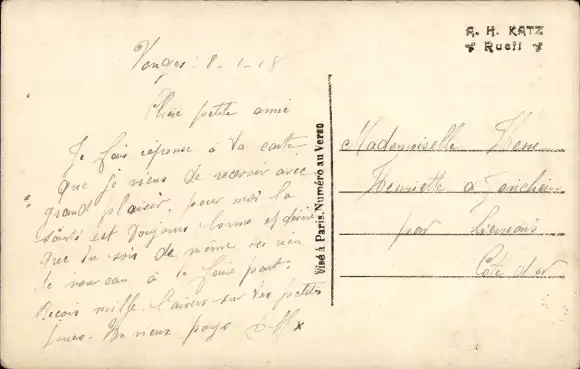 A. H. KATZ
Rueil
Vonges 8-1-18
Chère petite amie
Je fais réponse à ta carte
que je viens de recevoir avec
grand plaisir, pour moi la
santé est toujours bonne et désire
que tu sois de même, ici rien
de nouveau à te faire part.
Reçois mille baisers sur tes petites
joues. Un vieux pays
Visé à Paris. Numéro au Verso
Mademoiselle
Henriette à
par
Côte d'or